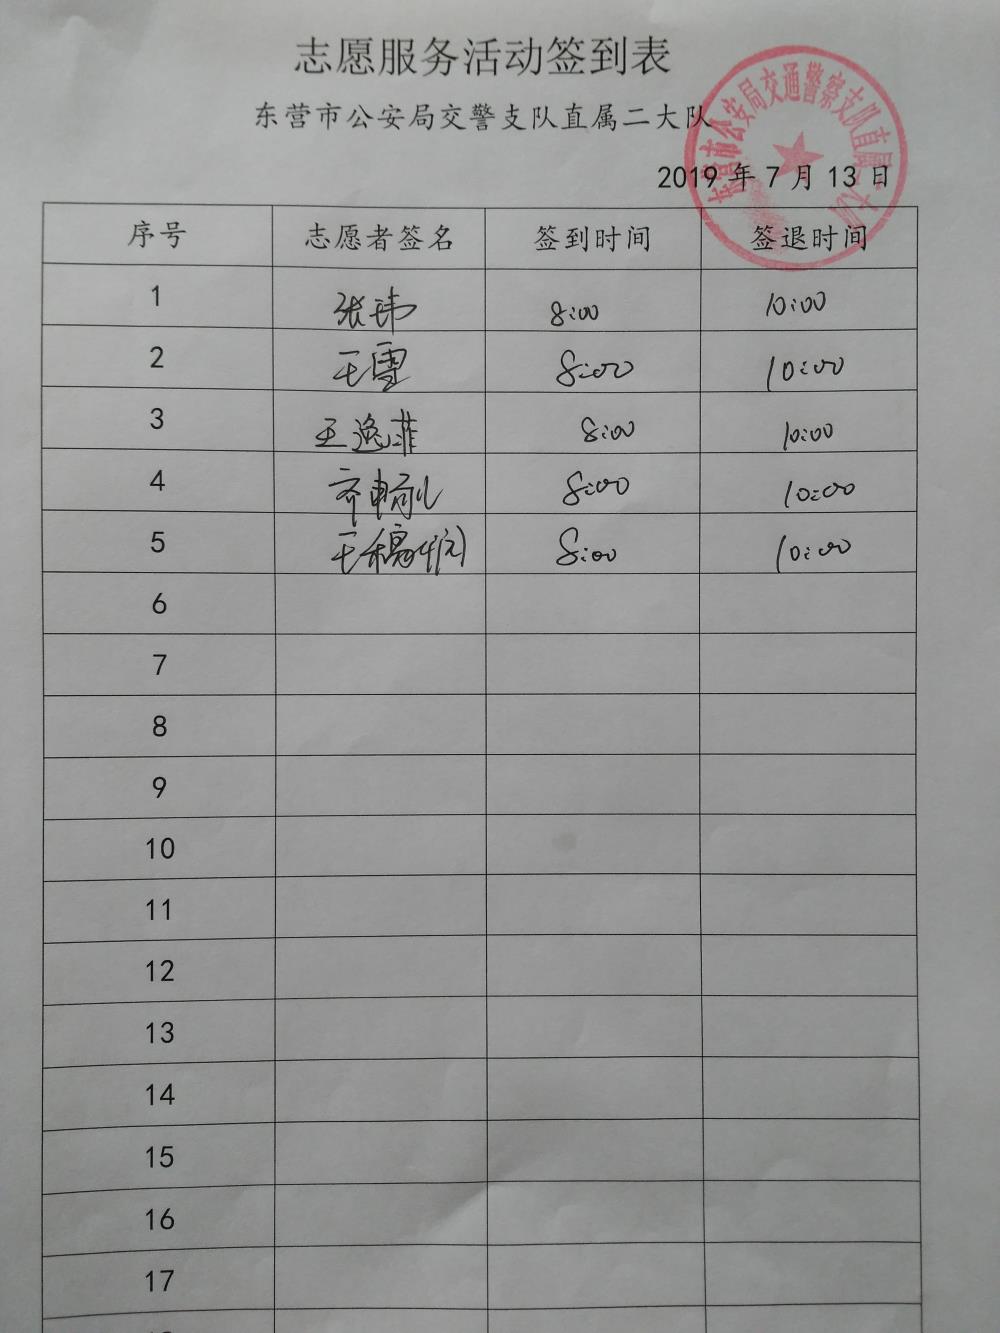 志愿服务活动签到表
东营市公安局交警支队直属二大队
东营市公安局交通警察支队直属二大队
2019 年 7 月 13 日
序号 志愿者签名 签到时间 签退时间
1 张玮 8:00 10:00
2 王雪 8:00 10:00
3 王逸菲 8:00 10:00
4 齐畅 8:00 10:00
5 王 8:00 10:00
6
7
8
9
10
11
12
13
14
15
16
17